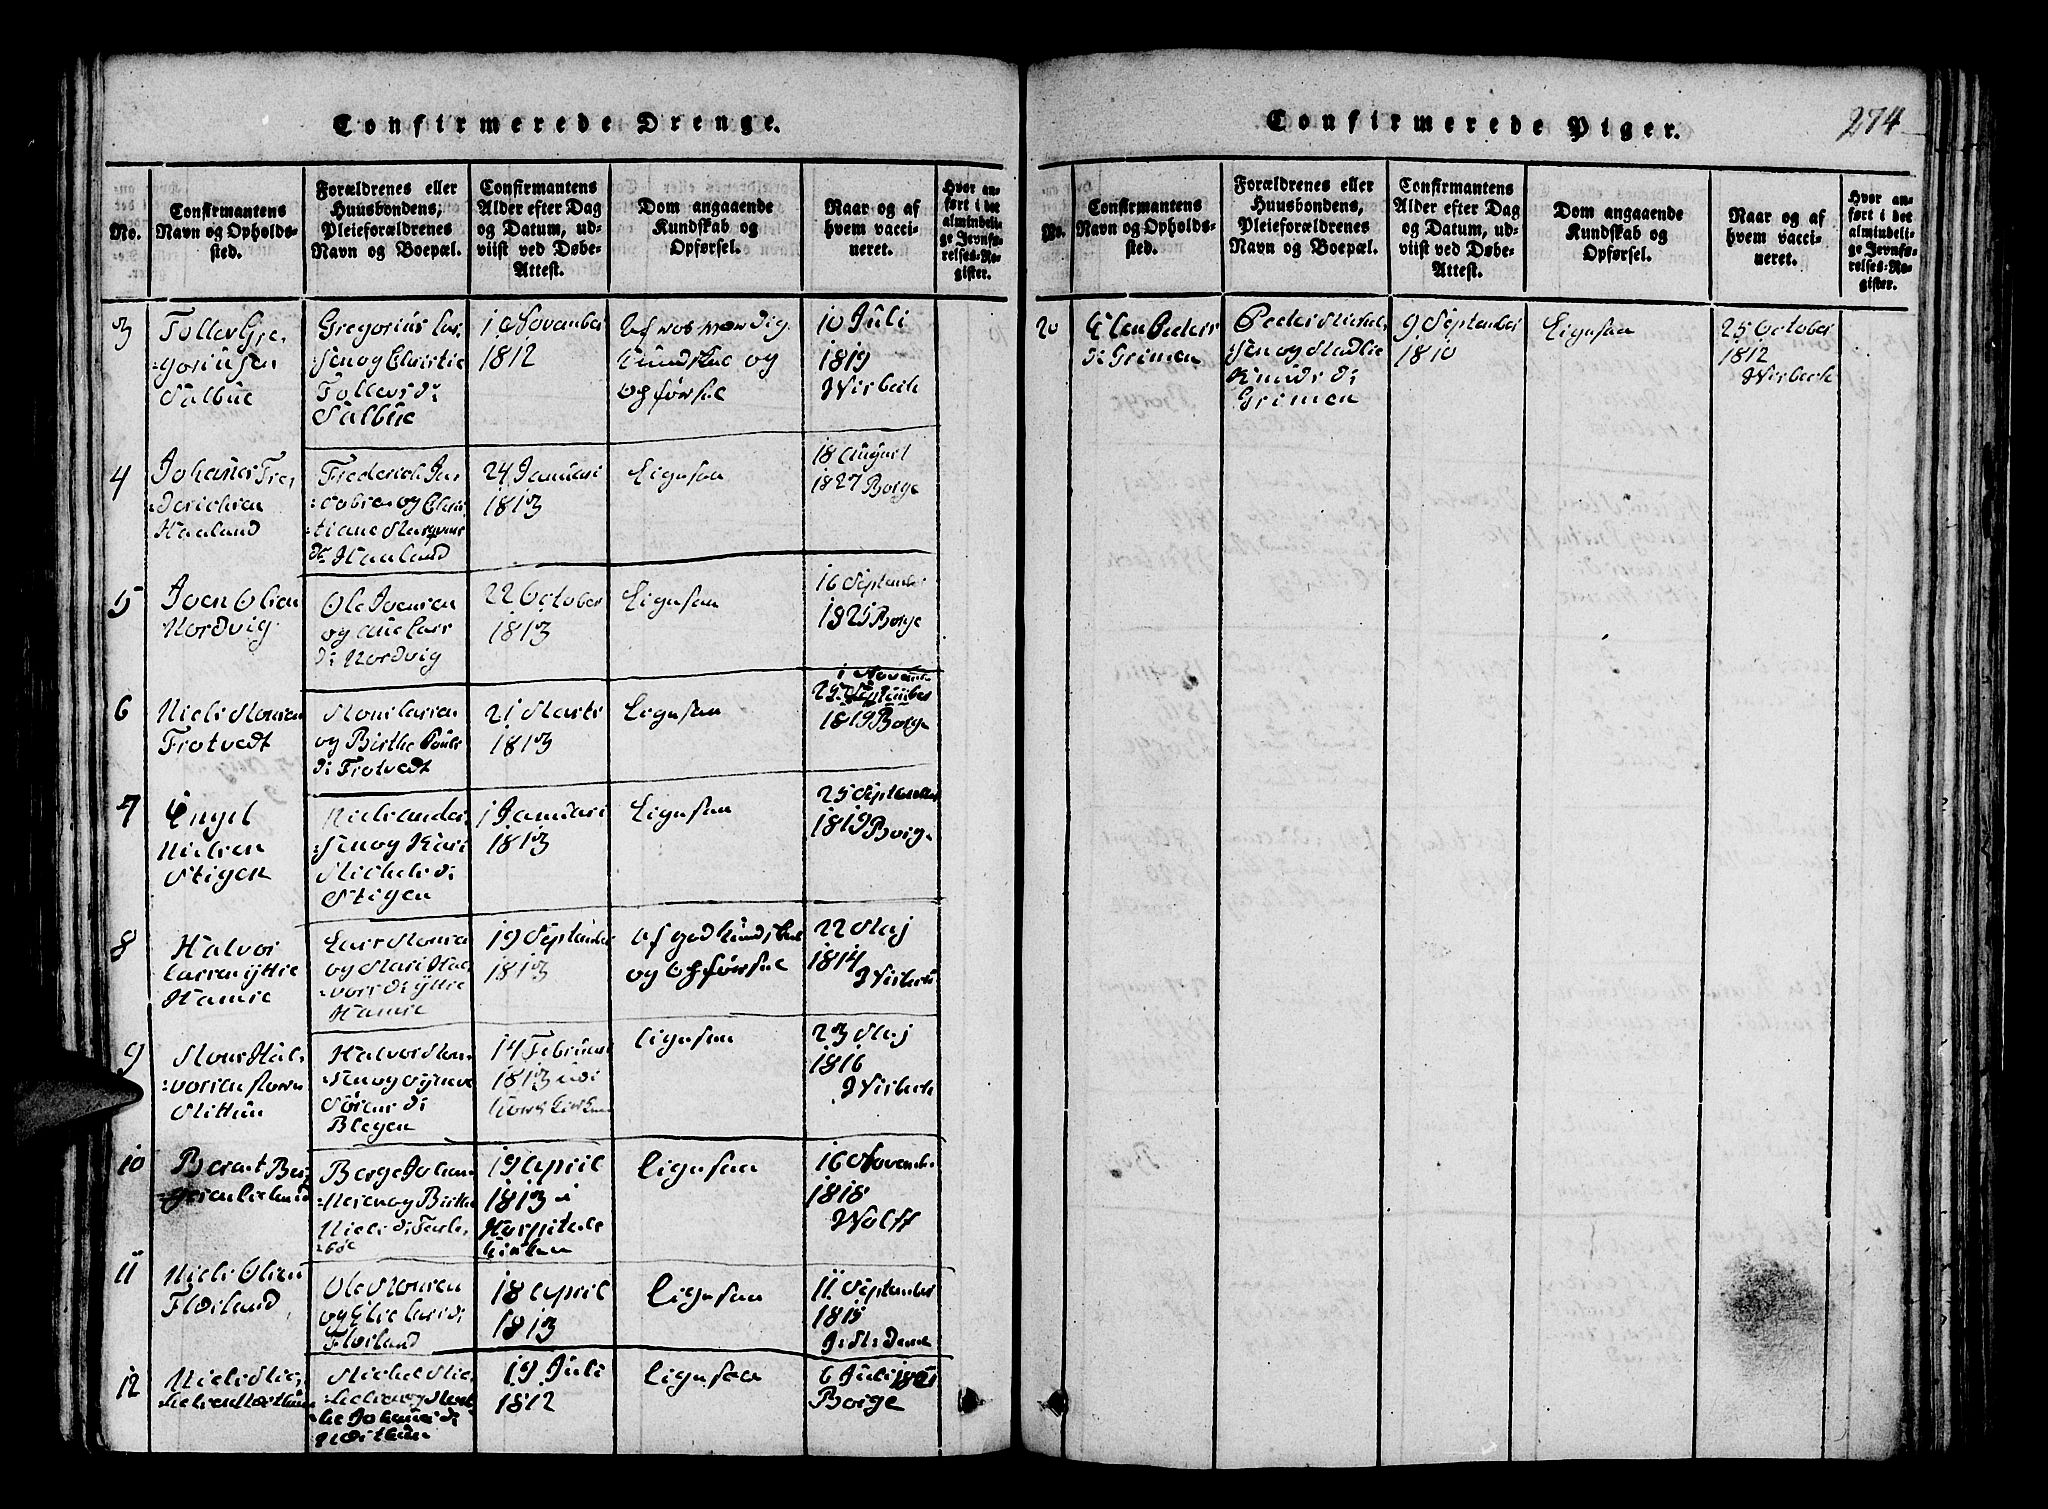 Confirmerede Drenge.
No.
Confirmantens
Navn og Opholds-
sted.
Forældrenes eller
Huusbondens,
Pleieforældrenes
Navn og Boepæl.
Confirmantens
Alder efter Dag
og Datum, ud-
viist ved Døbe-
Attest.
Dom angaaende
Kundskab og
Opførsel.
Naar og af
hvem vacci-
neret.
Hvor an-
ført i det
almindeli-
ge Jevnfø-
relses-Re-
gister.
3
Tolles Gre-
goriusen
Salbue
Gregorius Lar-
sen og Christie
Tollevs di
Salbue
1 November
1812
Af rosværdig
kundskab og
opførsel
10 Juli
1819
Wisbech
4
Johanes Fre-
derichsen
Haaland
Frederich Ja-
cobsen og Chris-
tiane
di Haaland
24 Januari
1813
Ligesaa
18 August
1827 Borge
5
Joen Olsen
Nordvig
Ole Joensen
og Ane Lars
di Nordvig
22 October
1813
Ligesaa
16 September
1825 Borge
6
Niels Monsen
Trotvedt
Mons Larsen
og Birthe Pouls
di Trotvedt
21 Marti
1813
Ligesaa
1 Novem
25 September
1819 Borge
7
Engel
Nielsen
Stigen
Niels Anders-
sen og Kari
Michels di
Stigen
1 Januari
1813
Ligesaa
25 September
1819 Borge
8
Halvor
Larsen yttre
Hamre
Lars Monsen
og Mari Hal-
vors di yttre
Hamre
19 September
1813
Af god kundskab
og opførsel
22 Maj
1814
Wisbech
9
Mons Hal-
vorsen
Halvor Mon-
sen og
Sørens di
Blegen
14 Februari
1813 udi
Kors kirken
Ligesaa
23 Maj
1816
Wisbech
10
Berent Ber-
gesen
Berge Johan-
nesen og Birthe
Niels di
19 April
1813 i
Hospitals
kirken
Ligesaa
16 November
1818
Wolff
11
Niels Olsen
Fløiland
Ole Monsen
og Elie Lars di
Fløiland
18 April
1813
Ligesaa
11 September
1815
12
Niels Mic-
helsen
Michel Mic-
helsen og
Johanes di
19 Juli
1812
Ligesaa
6 Juli 1821
Borge
Confirmerede Piger.
274
No.
Confirmantens
Navn og Opholds-
sted.
Forældrenes eller
Huusbondens,
Pleieforældrenes
Navn og Boepæl.
Confirmantens
Alder efter Dag
og Datum, ud-
viist ved Døbe-
Attest.
Dom angaaende
Kundskab og
Opførsel.
Naar og af
hvem vacci-
neret.
Hvor an-
ført i det
almindeli-
ge Jevnfø-
relses-Re-
gister.
20
Elen Peders
di Grimen
Peder Michel-
sen og Madlie
Knuds di
Grimen
9 September
1810
Ligesaa
25 October
1812
Wisbech